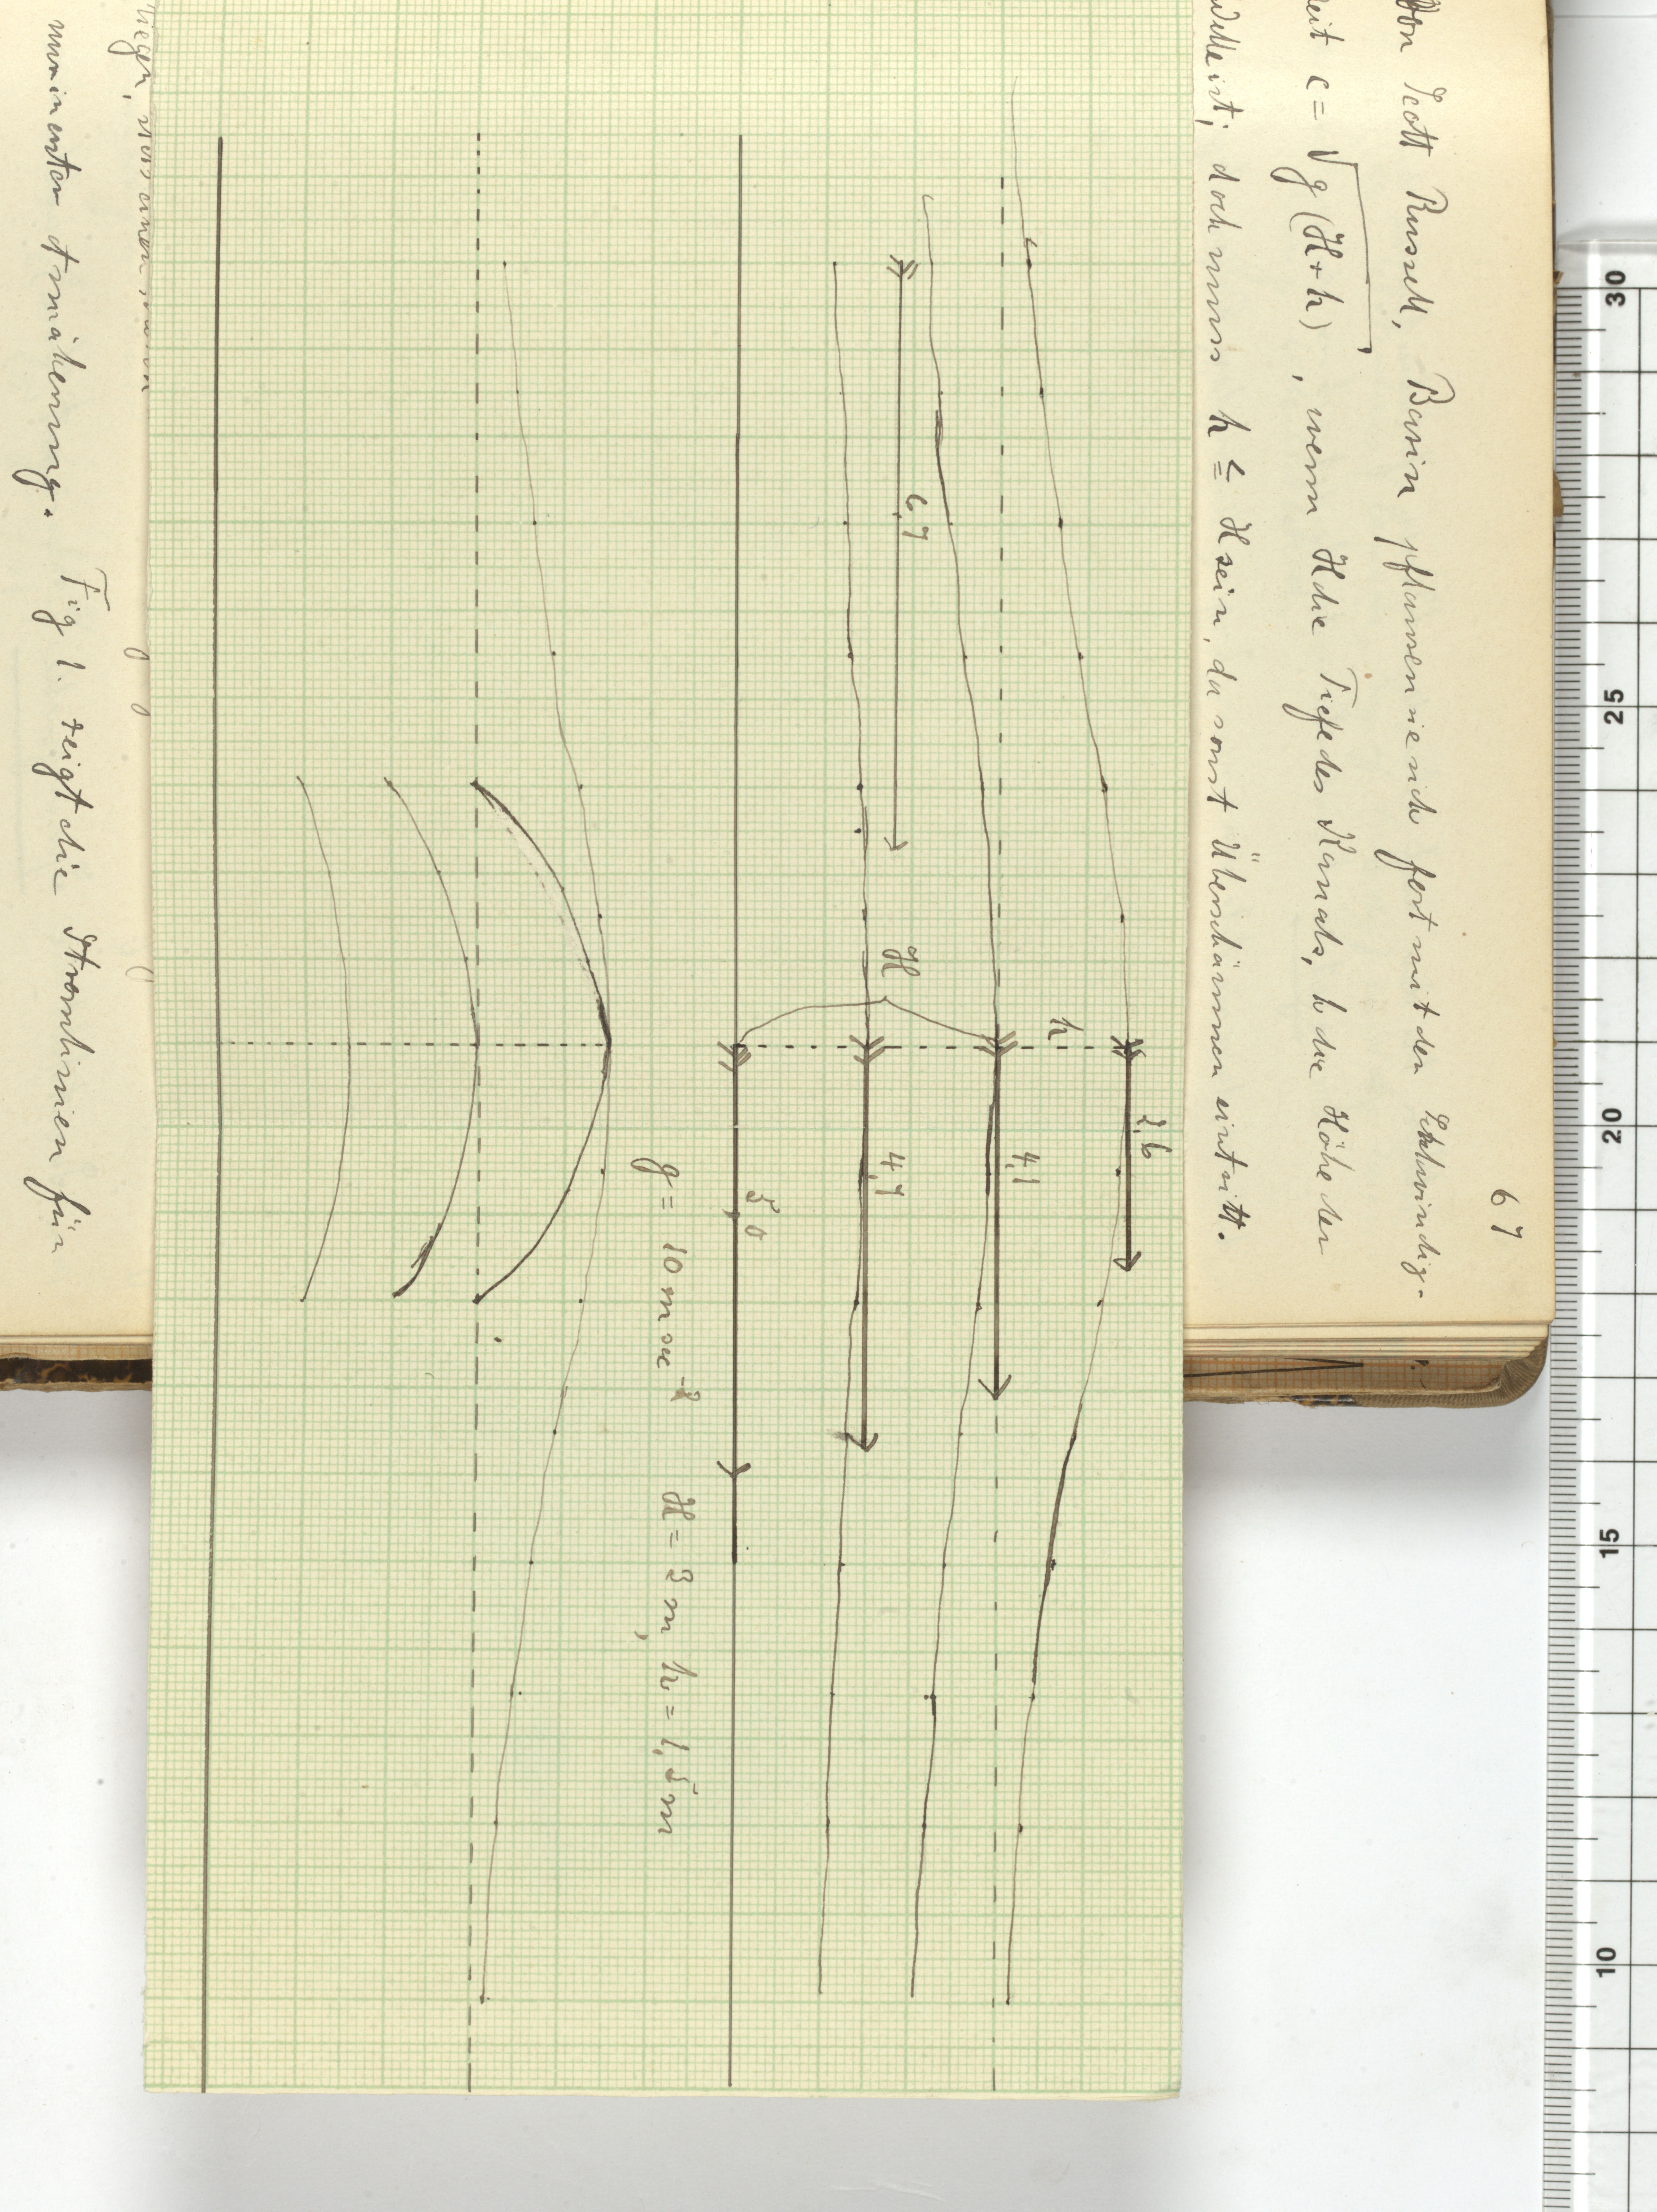 67
Von Scott Russell, Basin pflanzen sie sich fort mit der Geschwindig-
keit c = √g(H+h), wenn H die Tiefe des Kanals, h die Höhe der
Welle ist; doch muss h ≦ H sein, da sonst Überschäumen eintritt.
h
2,6
4,1
6,7
H
4,7
5,0
g = 10 m sec⁻² H = 3 m, h = 1,5 m
liegen, von einem
numinenter Annäherung. Fig 1. zeigt die Stromlinien für
30
25
20
15
10